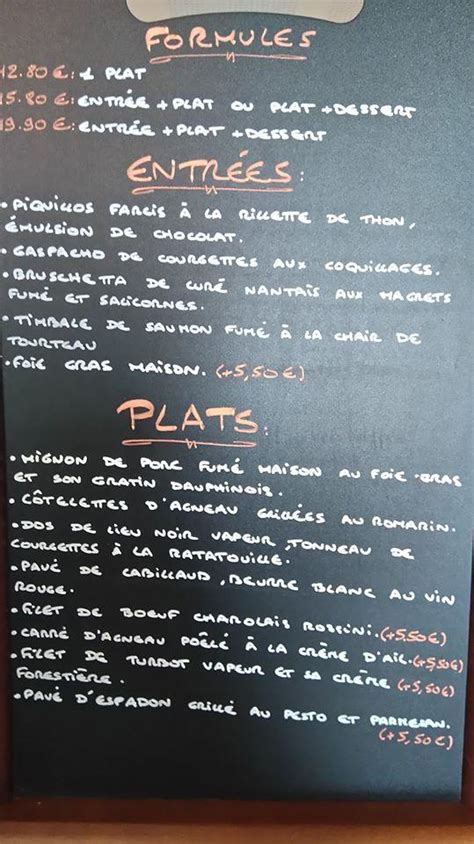 FORMULES
12.80 €: 1 PLAT
15.80 €: ENTRÉE + PLAT OU PLAT + DESSERT
19.90 €: ENTRÉE + PLAT + DESSERT
ENTRÉES:
• PIQUILLOS FARCIS À LA RILLETTE DE THON,
ÉMULSION DE CHOCOLAT.
• GASPACHO DE COURGETTES AUX COQUILLAGES.
• BRUSCHETTA DE CURÉ NANTAIS AUX MAGRETS
FUMÉ ET SALICORNES.
• TIMBALE DE SAUMON FUMÉ À LA CHAIR DE
TOURTEAU
• FOIE GRAS MAISON. (+5,50 €)
PLATS:
• MIGNON DE PORC FUMÉ MAISON AU FOIE-GRAS
ET SON GRATIN DAUPHINOIS.
• CÔTELETTES D'AGNEAU GRILLÉES AU ROMARIN.
• DOS DE LIEU NOIR VAPEUR, TONNEAU DE
COURGETTES À LA RATATOUILLE.
• PAVÉ DE CABILLAUD, BEURRE BLANC AU VIN
ROUGE.
• FILET DE BOEUF CHAROLAIS ROSSINI. (+5,50 €)
• CARRÉ D'AGNEAU POÊLÉ À LA CRÈME D'AIL. (+5,50 €)
• FILET DE TURBOT VAPEUR ET SA CRÈME (+5,50 €)
FORESTIÈRE.
• PAVÉ D'ESPADON GRILLÉ AU PESTO ET PARMESAN.
(+5,50 €)